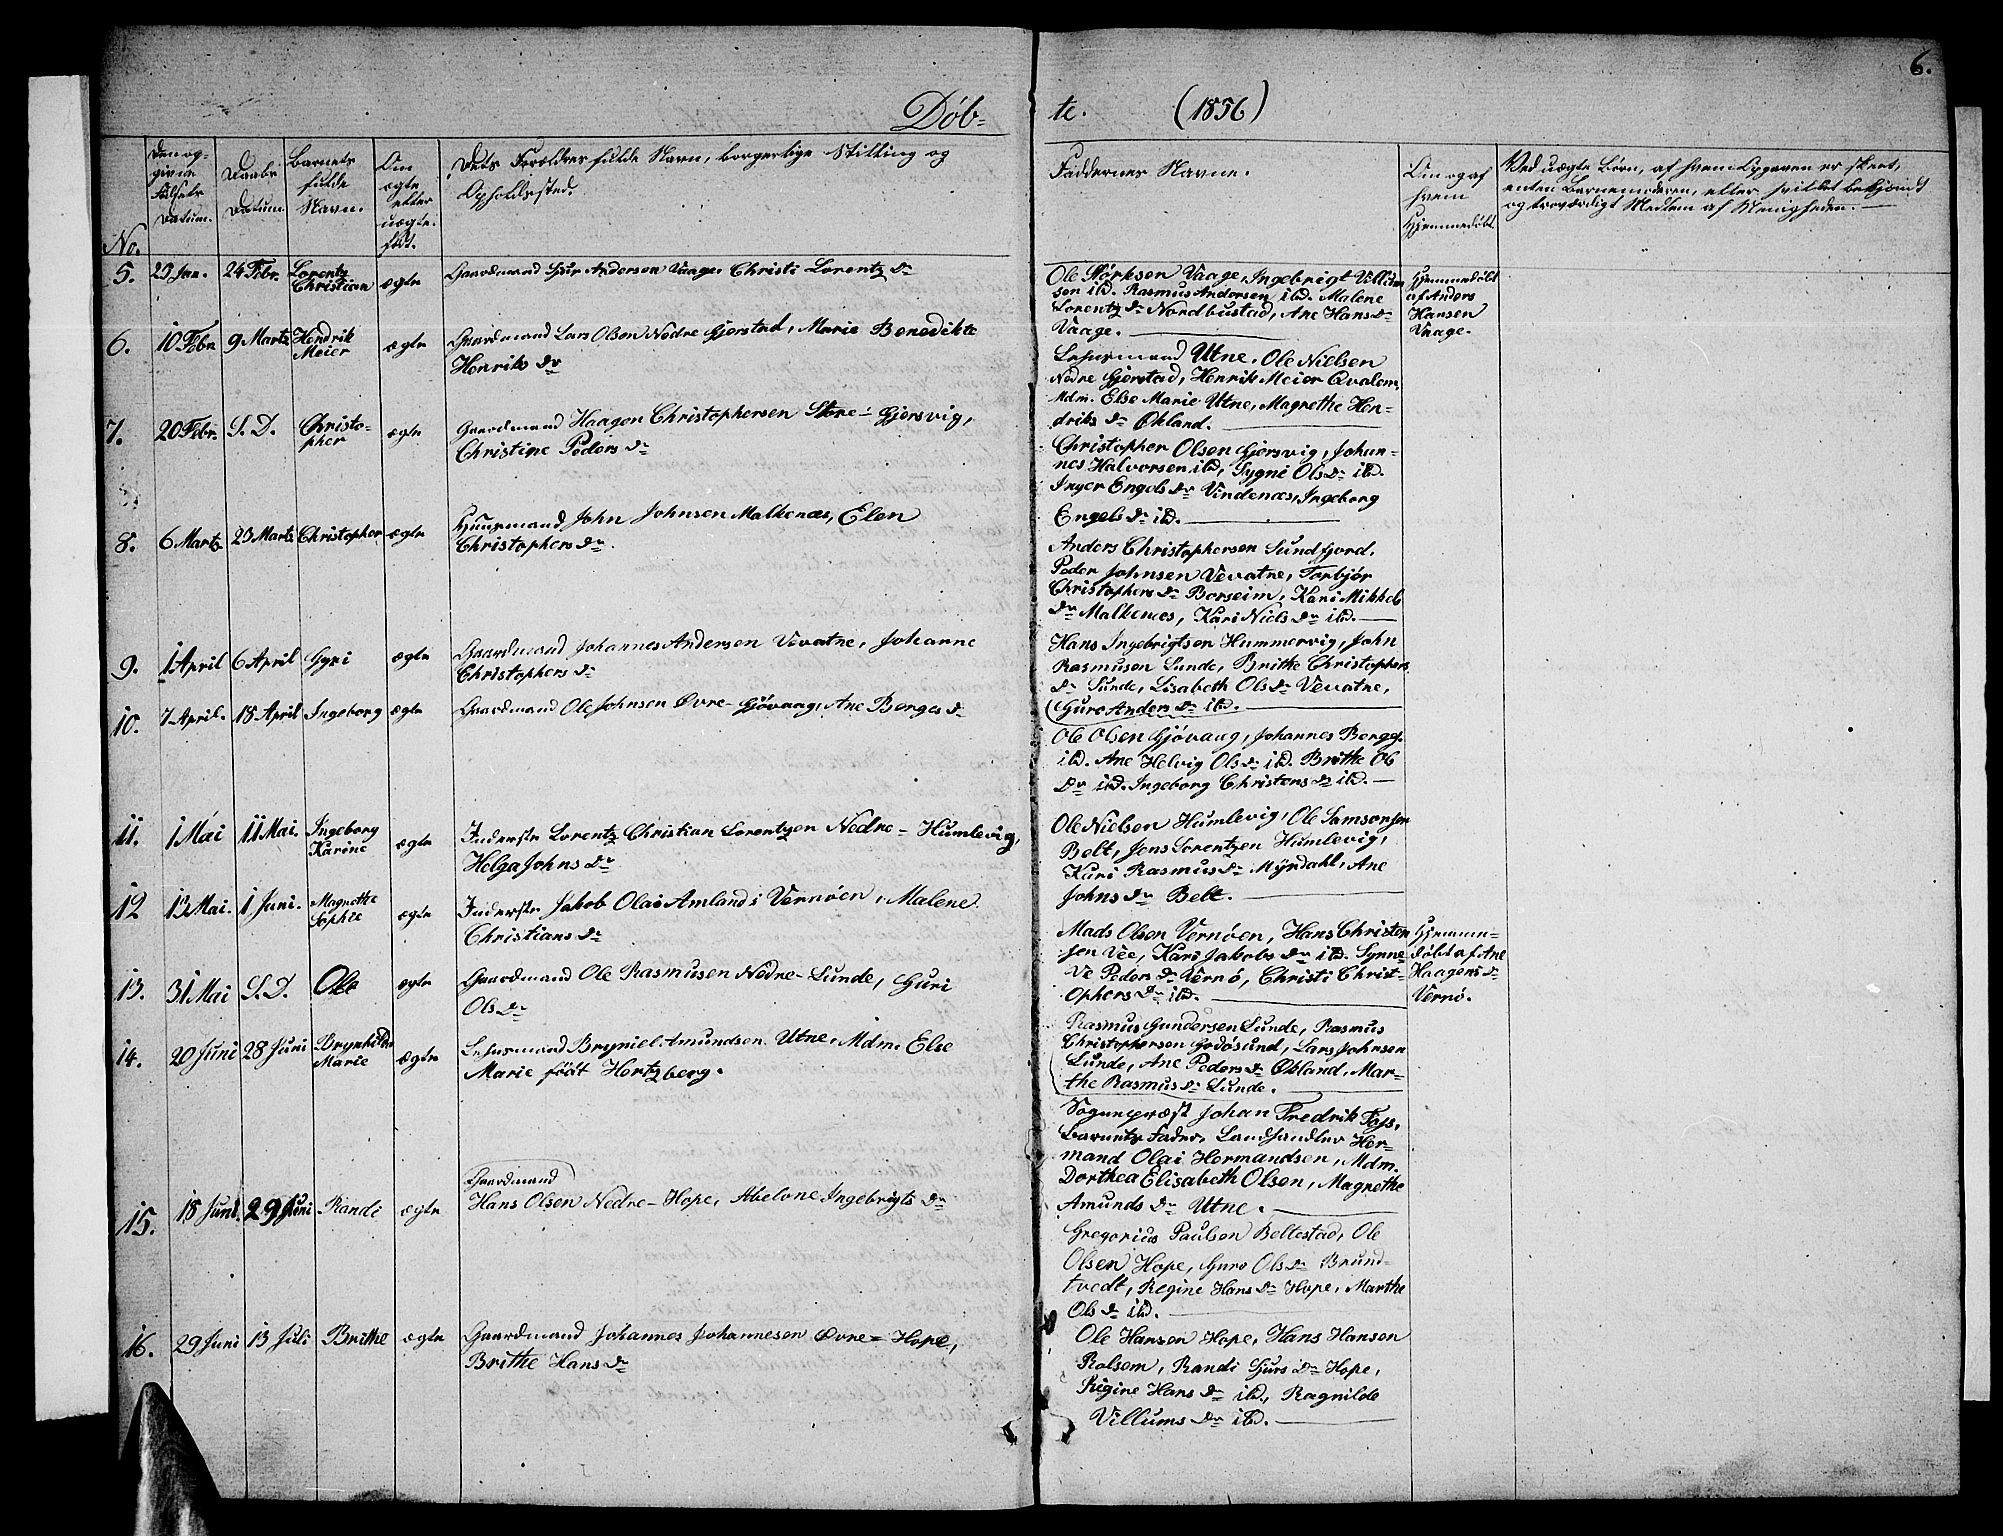 6.
Døb-
te. (1856)
No.
Den op-
givne
Fødsels
Datum.
Daabs
Datum
Barnets
fulde
Navn.
Om
ægte
eller
uægte
født.
Dets Forældres fulde Navn, borgerlige Stilling og
Opholdssted.
Faddernes Navne.
Om og af
hvem
Hjemmedøbt
Ved uægte Børn, af hvem Opgaven er skeet,
enten Barnemoderen, eller
og troværdigt Medlem af Menigheden.
5. 23 Jan. 24 Febr. Lorentz
Christian ægte
Gaardmand Sjur Andersen Vaage. Christi Lorentz Dr
Ole Størksen Vaage, Ingebrigt Villum
sen ibd. Rasmus Andersen ibd. Malene
Lorentz Dr Nordbustad, Ane Hans Dr
Vaage.
Hjemmedøbt
af Anders
Hansen
Vaage.
6. 10 Febr. 9 Marts Hendrik
Meier ægte
Gaardmand Lars Olsen Nedre Gjerstad, Marie Benedikte
Henriks Dr
Lehnsmand Utne. Ole Nielsen
Nedre Gjerstad, Henrik Meier Qvalem,
Mdm. Else Marie Utne, Magrethe Hen-
driks Dr Økland.
7. 20 Febr. S. D. Christo-
pher ægte
Gaardmand Haagen Christophersen Store-Gjersvig,
Christine Peders Dr
Christopher Olsen Gjersvig, Johan-
nes Halvorsen ibd, Sygni Ols Dr ibd.
Inger Engels Dr Vindenæs, Ingeborg
Engels Dr ibd.
8. 6 Marts 23 Marts Christopher ægte
Huusmand John Johnsen Malkenæs, Elen
Christophers Dr.
Anders Christophersen Sundfjord.
Peder Johnsen Vevatne, Torbjør
Christophers Dr Borseim, Kari Mikkels
Dr Malkenæs, Kari Niels Dr ibd.
9. 1 April 6 April Gyri ægte
Gaardmand Johannes Andersen Vevatne, Johanne
Christophers Dr
Hans Ingebrigtsen Hummervig, John
Rasmusen Lunde, Brithe Christophers
Dr Sunde, Lisabeth Ols Dr Vevatne,
Guro Anders Dr ibd.
10. 7 April. 18 April Ingeborg ægte
Gaardmand Ole Johnsen Øvre-Gjövaag, Ane Borges Dr
Ole Olsen Gjövaag, Johannes Borges.
ibd. Ane Helvig Ols Dr ibd. Brithe Ols
Dr ibd. Ingeborg Christens Dr ibd.
11. 1 Mai 11 Mai. Ingeborg
Karine ægte
Inderste Lorentz Christian Lorentzen Nedre-Humlevig,
Helga Johns Dr
Ole Nielsen Humlevig, Ole Samsonsen
Belt, Jens Lorentzen Humlevig,
Kari Rasmus Dr Myrdahl, Ane
Johns Dr Belt.
12 13 Mai. 1 Juni. Magrethe
Sophie ægte
Inderste Jakob Olai Amland i Vernøen, Malene
Christians Dr
Mads Olsen Vernøen, Hans Christen
sen Vee, Kari Jakobs Dr ibd. Synne-
ve Peders Dr Vernö, Christi Christ-
ophers Dr ibd.
Hjemme-
døbt af Ane
Haagens Dr
Vernö.
13. 31 Mai S. D. Ole ægte
Gaardmand Ole Rasmusen Nedre-Lunde, Guri
Ols Dr
Rasmus Gundersen Lunde, Rasmus
Christophersen Godösund, Lars Johnsen
Lunde, Ane Peders Dr Økland, Mar-
the Rasmus Dr Lunde.
14. 20 Juni 28 Juni Brynhilde
Marie ægte
Lehnsmand Bryniel Amundsen Utne, Mdm. Else
Marie født Hertzberg.
Sognepræst Johan Fredrik
Barnets Fader, Landhandler Her-
mand Olai Hermandsen, Mdm.
Dorthea Elisabeth Olsen, Magrethe
Amunds Dr Utne.
15. 18 Juni 29 Juni Randi ægte
Gaardmand
Hans Olsen Nedre-Hope, Abelone Ingebrigts Dr
Gregorius Paulsen Beltestad, Ole
Olsen Hope, Guro Ols Dr Brund-
tvedt, Regine Hans Dr Hope, Marthe
Ols Dr ibd.
16. 29 Juni 13 Juli Brithe ægte
Gaardmand Johannes Johannesen Øvre-Hope,
Brithe Hans Dr
Ole Hansen Hope, Hans Hansen
Rolsem, Randi Sjurs Dr Hope,
Regine Hans Dr ibd., Ragnilde
Villums Dr ibd.